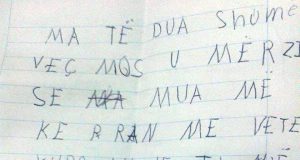 MA TË DUA Shume
VEÇ MOS U MËRZI
SE MUA MË
KE RRAN ME VETE